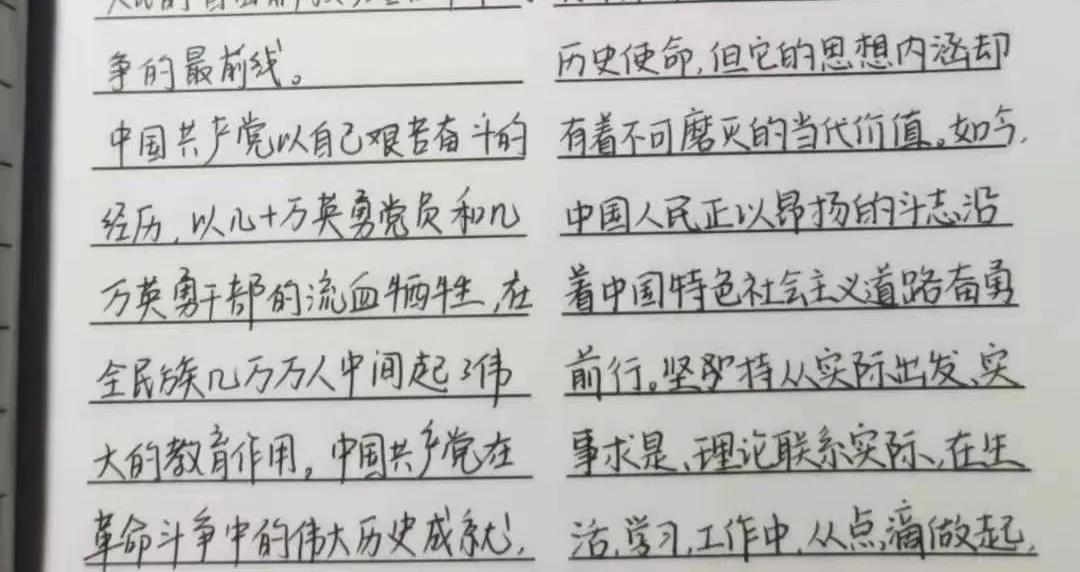 争的最前线。
中国共产党以自己艰苦奋斗的
经历,以几十万英勇党员和几
万英勇干部的流血牺牲,在
全民族几万万人中间起了伟
大的教育作用。中国共产党在
革命斗争中的伟大历史成就,
历史使命,但它的思想内涵却
有着不可磨灭的当代价值。如今,
中国人民正以昂扬的斗志沿
着中国特色社会主义道路奋勇
前行。坚持从实际出发、实
事求是、理论联系实际,在生
活,学习,工作中,从点滴做起,